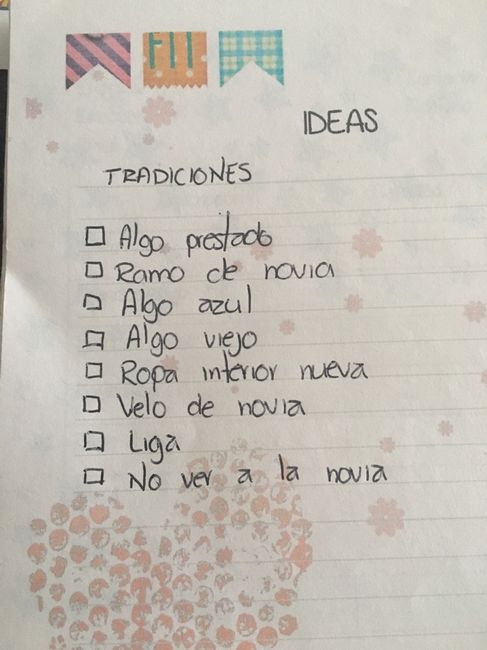 IDEAS
TRADICIONES
Algo prestado
Ramo de novia
Algo azul
Algo viejo
Ropa interior nueva
Velo de novia
Liga
No ver a la novia